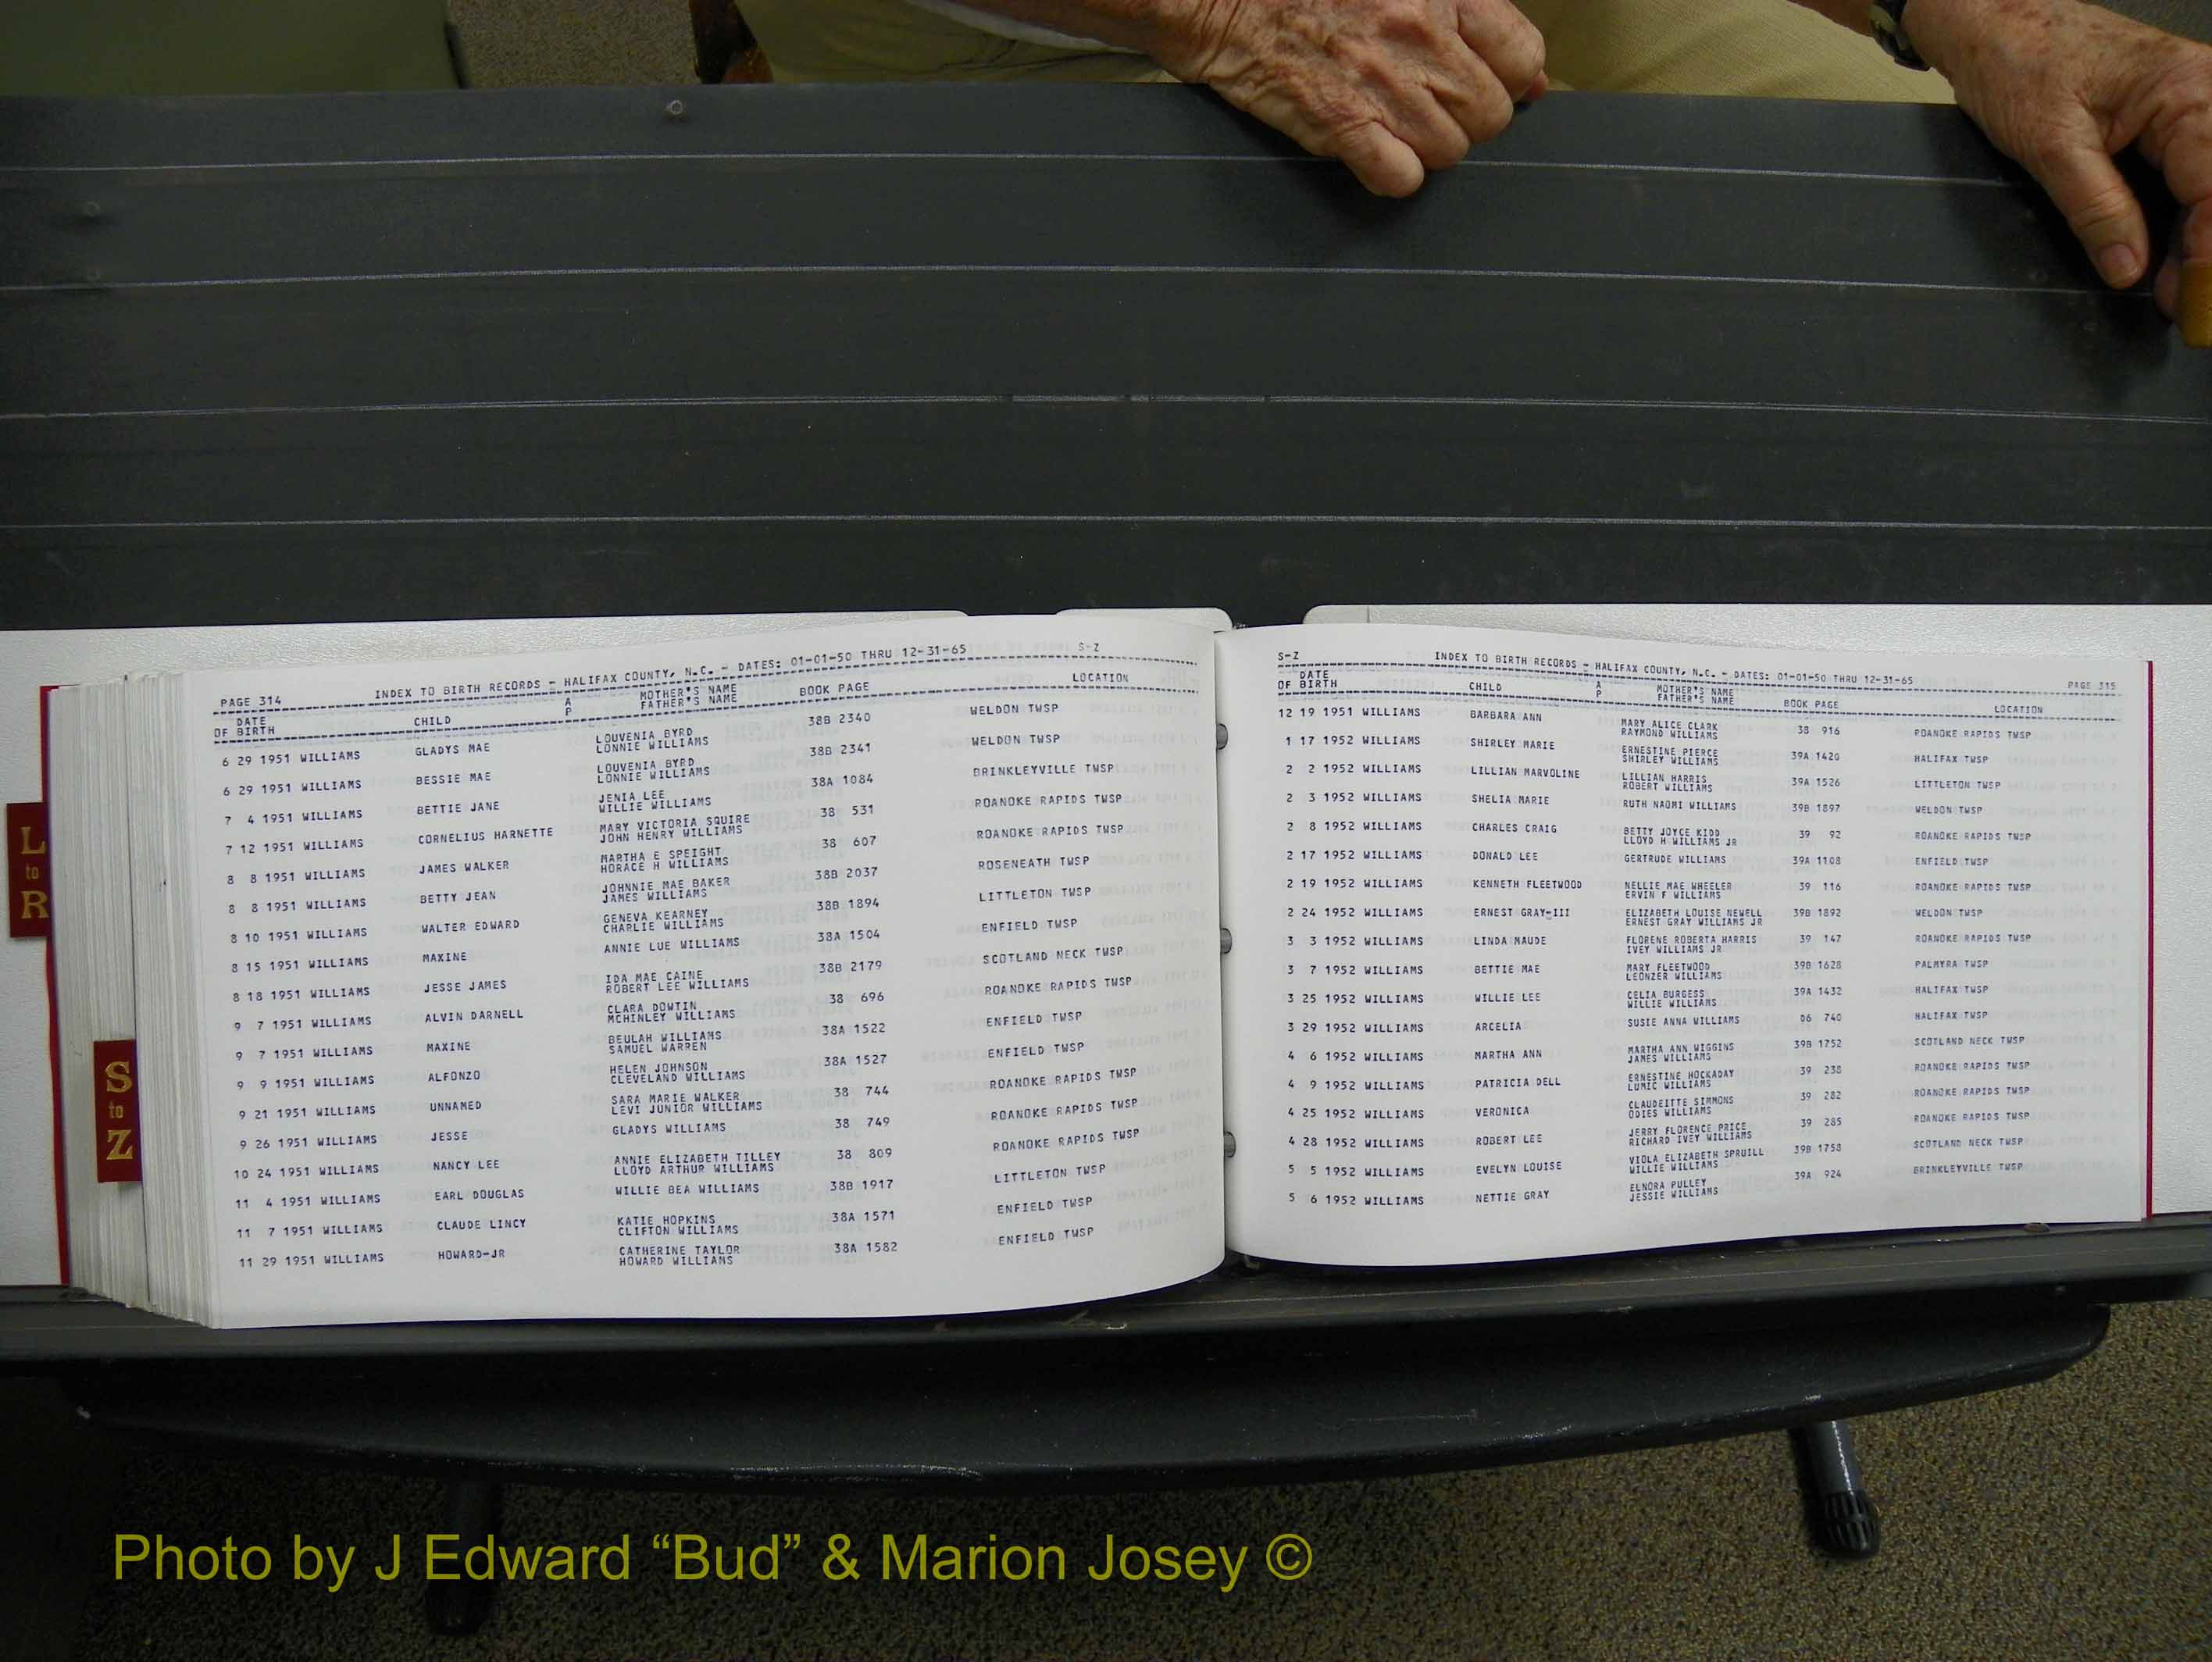 L
to
R
S
to
Z
PAGE 314 INDEX TO BIRTH RECORDS - HALIFAX COUNTY, N.C. - DATES: 01-01-50 THRU 12-31-65 S-Z
DATE OF BIRTH CHILD A P MOTHER'S NAME FATHER'S NAME BOOK PAGE LOCATION
6 29 1951 WILLIAMS GLADYS MAE LOUVENIA BYRD 38B 2340 WELDON TWSP
LONNIE WILLIAMS
6 29 1951 WILLIAMS BESSIE MAE LOUVENIA BYRD 38B 2341 WELDON TWSP
LONNIE WILLIAMS
7 4 1951 WILLIAMS BETTIE JANE JENIA LEE 38A 1084 BRINKLEYVILLE TWSP
WILLIE WILLIAMS
7 12 1951 WILLIAMS CORNELIUS HARNETTE MARY VICTORIA SQUIRE 38 531 ROANOKE RAPIDS TWSP
JOHN HENRY WILLIAMS
8 8 1951 WILLIAMS JAMES WALKER MARTHA E SPEIGHT 38 607 ROANOKE RAPIDS TWSP
HORACE H WILLIAMS
8 8 1951 WILLIAMS BETTY JEAN JOHNNIE MAE BAKER 38B 2037 ROSENEATH TWSP
JAMES WILLIAMS
8 10 1951 WILLIAMS WALTER EDWARD GENEVA KEARNEY 38B 1894 LITTLETON TWSP
CHARLIE WILLIAMS
8 15 1951 WILLIAMS MAXINE ANNIE LUE WILLIAMS 38A 1504 ENFIELD TWSP
8 18 1951 WILLIAMS JESSE JAMES IDA MAE CAINE 38B 2179 SCOTLAND NECK TWSP
ROBERT LEE WILLIAMS
9 7 1951 WILLIAMS ALVIN DARNELL CLARA DOWTIN 38 696 ROANOKE RAPIDS TWSP
MCHINLEY WILLIAMS
9 7 1951 WILLIAMS MAXINE BEULAH WILLIAMS 38A 1522 ENFIELD TWSP
SAMUEL WARREN
9 9 1951 WILLIAMS ALFONZO HELEN JOHNSON 38A 1527 ENFIELD TWSP
CLEVELAND WILLIAMS
9 21 1951 WILLIAMS UNNAMED SARA MARIE WALKER 38 744 ROANOKE RAPIDS TWSP
LEVI JUNIOR WILLIAMS
9 26 1951 WILLIAMS JESSE GLADYS WILLIAMS 38 749 ROANOKE RAPIDS TWSP
10 24 1951 WILLIAMS NANCY LEE ANNIE ELIZABETH TILLEY 38 809 ROANOKE RAPIDS TWSP
LLOYD ARTHUR WILLIAMS
11 4 1951 WILLIAMS EARL DOUGLAS WILLIE BEA WILLIAMS 38B 1917 LITTLETON TWSP
11 7 1951 WILLIAMS CLAUDE LINCY KATIE HOPKINS 38A 1571 ENFIELD TWSP
CLIFTON WILLIAMS
11 29 1951 WILLIAMS HOWARD-JR CATHERINE TAYLOR 38A 1582 ENFIELD TWSP
HOWARD WILLIAMS
S-Z INDEX TO BIRTH RECORDS - HALIFAX COUNTY, N.C. - DATES: 01-01-50 THRU 12-31-65 PAGE 315
DATE OF BIRTH CHILD A P MOTHER'S NAME FATHER'S NAME BOOK PAGE LOCATION
12 19 1951 WILLIAMS BARBARA ANN MARY ALICE CLARK 38 916 ROANOKE RAPIDS TWSP
RAYMOND WILLIAMS
1 17 1952 WILLIAMS SHIRLEY MARIE ERNESTINE PIERCE 39A 1420 HALIFAX TWSP
SHIRLEY WILLIAMS
2 2 1952 WILLIAMS LILLIAN MARVOLINE LILLIAN HARRIS 39A 1526 LITTLETON TWSP
ROBERT WILLIAMS
2 3 1952 WILLIAMS SHELIA MARIE RUTH NAOMI WILLIAMS 39B 1897 WELDON TWSP
2 8 1952 WILLIAMS CHARLES CRAIG BETTY JOYCE KIDD 39 92 ROANOKE RAPIDS TWSP
LLOYD H WILLIAMS JR
2 17 1952 WILLIAMS DONALD LEE GERTRUDE WILLIAMS 39A 1108 ENFIELD TWSP
2 19 1952 WILLIAMS KENNETH FLEETWOOD NELLIE MAE WHEELER 39 116 ROANOKE RAPIDS TWSP
ERVIN F WILLIAMS
2 24 1952 WILLIAMS ERNEST GRAY-III ELIZABETH LOUISE NEWELL 39B 1892 WELDON TWSP
ERNEST GRAY WILLIAMS JR
3 3 1952 WILLIAMS LINDA MAUDE FLORENE ROBERTA HARRIS 39 147 ROANOKE RAPIDS TWSP
IVEY WILLIAMS JR
3 7 1952 WILLIAMS BETTIE MAE MARY FLEETWOOD 39B 1628 PALMYRA TWSP
LEONZER WILLIAMS
3 25 1952 WILLIAMS WILLIE LEE CELIA BURGESS 39A 1432 HALIFAX TWSP
WILLIE WILLIAMS
3 29 1952 WILLIAMS ARCELIA SUSIE ANNA WILLIAMS D6 740 HALIFAX TWSP
4 6 1952 WILLIAMS MARTHA ANN MARTHA ANN WIGGINS 39B 1752 SCOTLAND NECK TWSP
JAMES WILLIAMS
4 9 1952 WILLIAMS PATRICIA DELL ERNESTINE HOCKADAY 39 238 ROANOKE RAPIDS TWSP
LUMIC WILLIAMS
4 25 1952 WILLIAMS VERONICA CLAUDEITTE SIMMONS 39 282 ROANOKE RAPIDS TWSP
ODIES WILLIAMS
4 28 1952 WILLIAMS ROBERT LEE JERRY FLORENCE PRICE 39 285 ROANOKE RAPIDS TWSP
RICHARD IVEY WILLIAMS
5 5 1952 WILLIAMS EVELYN LOUISE VIOLA ELIZABETH SPRUILL 39B 1758 SCOTLAND NECK TWSP
WILLIE WILLIAMS
5 6 1952 WILLIAMS NETTIE GRAY ELNORA PULLEY 39A 924 BRINKLEYVILLE TWSP
JESSIE WILLIAMS
Photo by J Edward “Bud” & Marion Josey ©